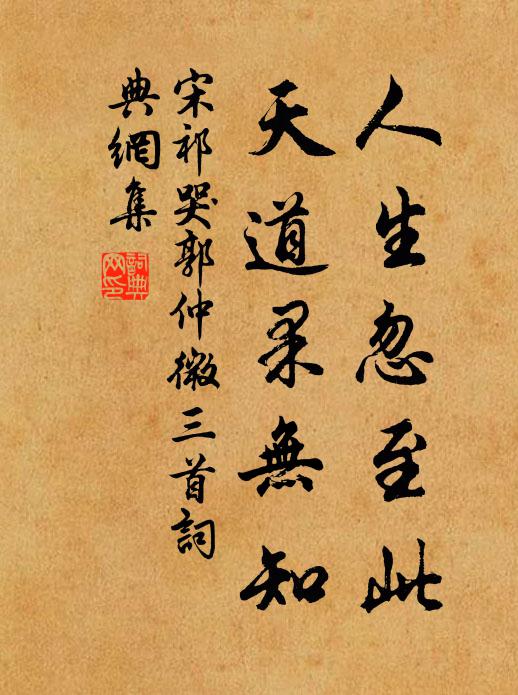 人生忽至此
天道果無知
宋祁哭郭仲微三首詞
典網集
詞典網印